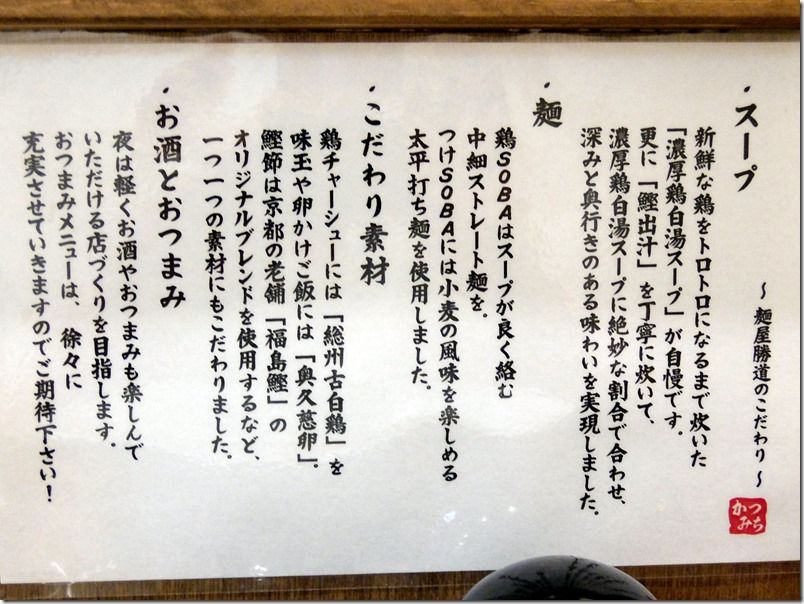 〜 麺屋勝道のこだわり 〜
・スープ
新鮮な鶏をトロトロになるまで炊いた
「濃厚鶏白湯スープ」が自慢です。
更に「鰹出汁」を丁寧に炊いて、
濃厚鶏白湯スープに絶妙な割合で合わせ、
深みと奥行きのある味わいを実現しました。
・麺
鶏SOBAはスープが良く絡む
中細ストレート麺を。
つけSOBAには小麦の風味を楽しめる
太平打ち麺を使用しました。
・こだわり素材
鶏チャーシューには「総州古白鶏」を
味玉や卵かけご飯には「奥久慈卵」。
鰹節は京都の老舗「福島鰹」の
オリジナルブレンドを使用するなど、
一つ一つの素材にもこだわりました。
・お酒とおつまみ
夜は軽くお酒やおつまみも楽しんで
いただける店づくりを目指します。
おつまみメニューは、徐々に
充実させていきますのでご期待下さい！
かつみち